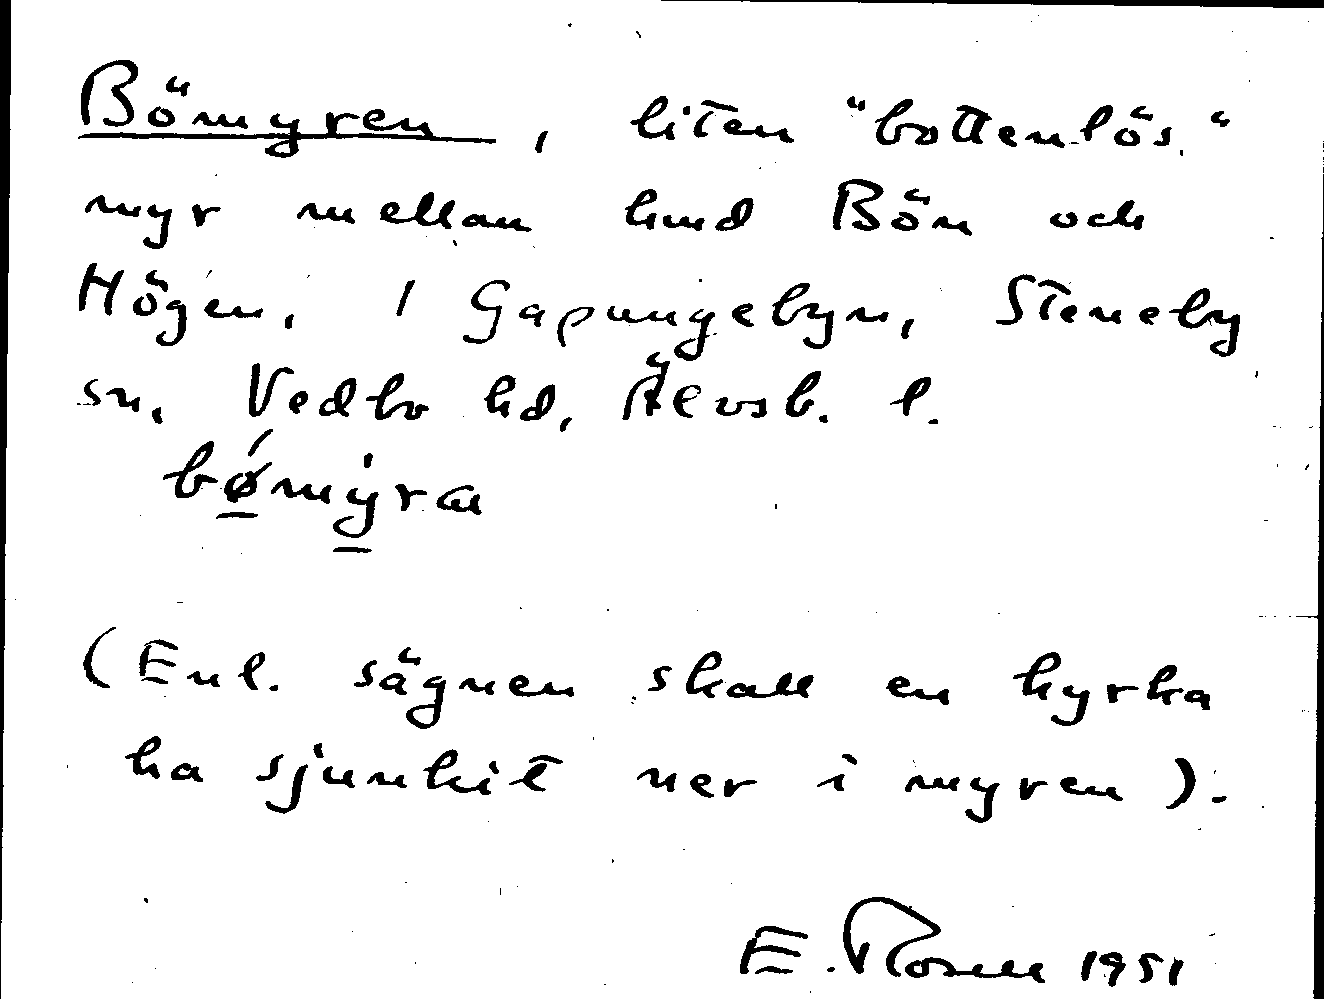 Bömyren, liten "bottenlös"
myr mellan hmd Bön och
Högen, / Gapungebyn, Steneby
sn, Vedbo hd, Älvsb. l.
bǿmýræ
(Enl. sägnen skall en kyrka
ha sjunkit ner i myren).
E. Rosell 1951